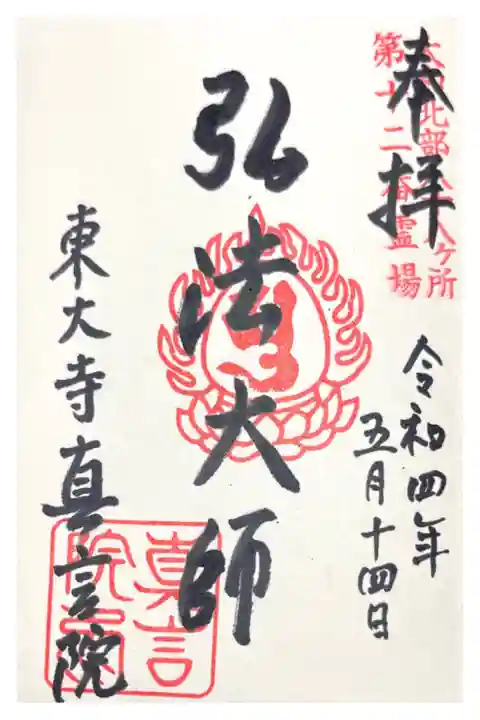 奉拝
大和北部八十八ヶ所
第十二番霊場
令和四年
五月十四日
弘法大師
東大寺真言院
真言
院